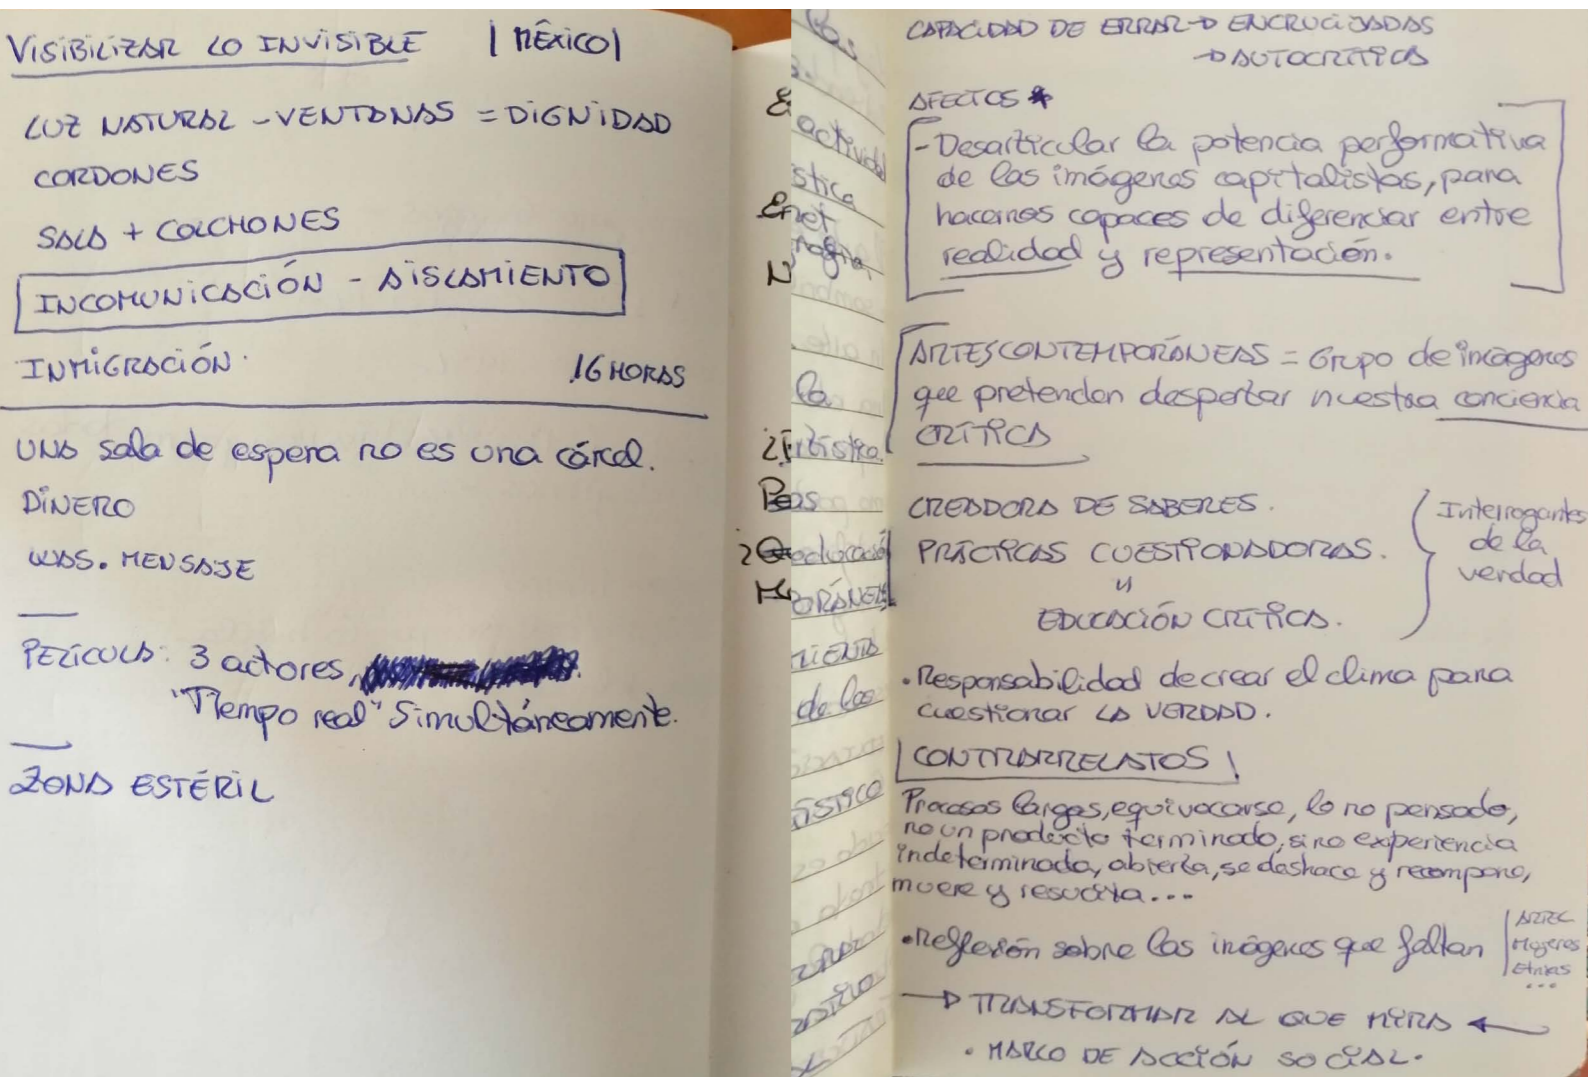 VISIBILIZAR LO INVISIBLE |MÉXICO|
LUZ NATURAL - VENTANAS = DIGNIDAD
CORDONES
SALA + COLCHONES
INCOMUNICACIÓN - AISLAMIENTO
INMIGRACIÓN. 16 HORAS
UNA sala de espera no es una cárcel.
DINERO
WAS. MENSAJE
PELÍCULA: 3 actores,
"Tiempo real" Simultáneamente.
ZONA ESTÉRIL
Las
activid
stica
La
2
educació
ORÁNE
MIENTO
de las
CAPACIDAD DE ERRAR → ENCRUCIJADAS
→ AUTOCRÍTICA
AFECTOS *
- Desarticular la potencia performativa
de las imágenes capitalistas, para
hacernos capaces de diferenciar entre
realidad y representación.
ARTES CONTEMPORÁNEAS = Grupo de imágenes
que pretenden despertar nuestra conciencia
CRÍTICA
CREADORA DE SABERES.
PRÁCTICAS CUESTIONADORAS.
"
EDUCACIÓN CRÍTICA.
Interrogantes
de la
verdad
• Responsabilidad de crear el clima para
cuestionar LA VERDAD.
|CONTRARRELATOS|
Procesos largos, equivocarse, lo no pensado,
no un producto terminado, sino experiencia
indeterminada, abierta, se deshace y recompone,
muere y resucita...
• Reflexión sobre las imágenes que faltan
Mujeres
Etnias
...
→ TRANSFORMAR AL QUE MIRA ←
• MARCO DE ACCIÓN SOCIAL.